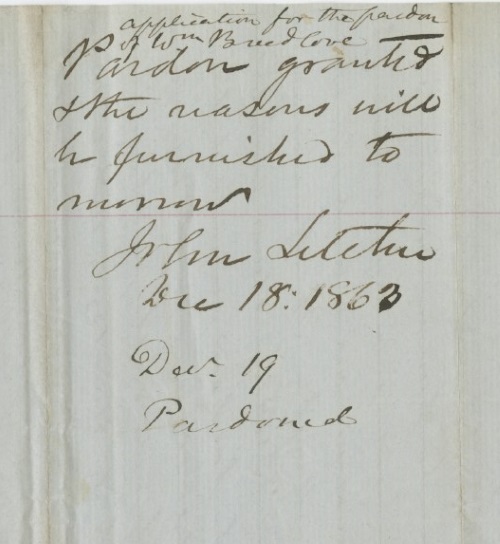 application for the pardon
of Wm Breedlove
Pardon granted
& the reasons will
be furnished to
morrow
John Letcher
Dec 18: 1863
Dec. 19
Pardoned